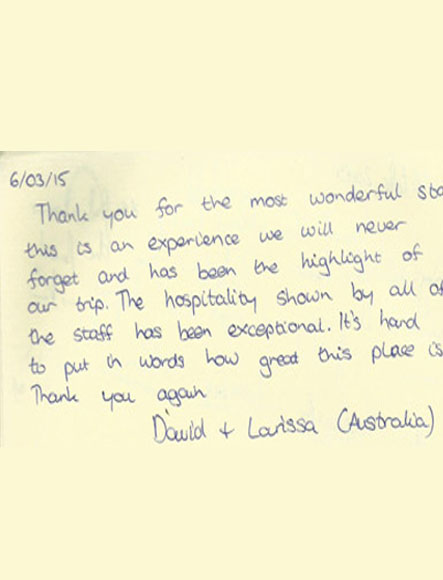 6/03/15
Thank you for the most wonderful sta
this is an experience we will never
forget and has been the highlight of
our trip. The hospitality shown by all of
the staff has been exceptional. It's hard
to put in words how great this place is
Thank you again
David + Larissa (Australia)